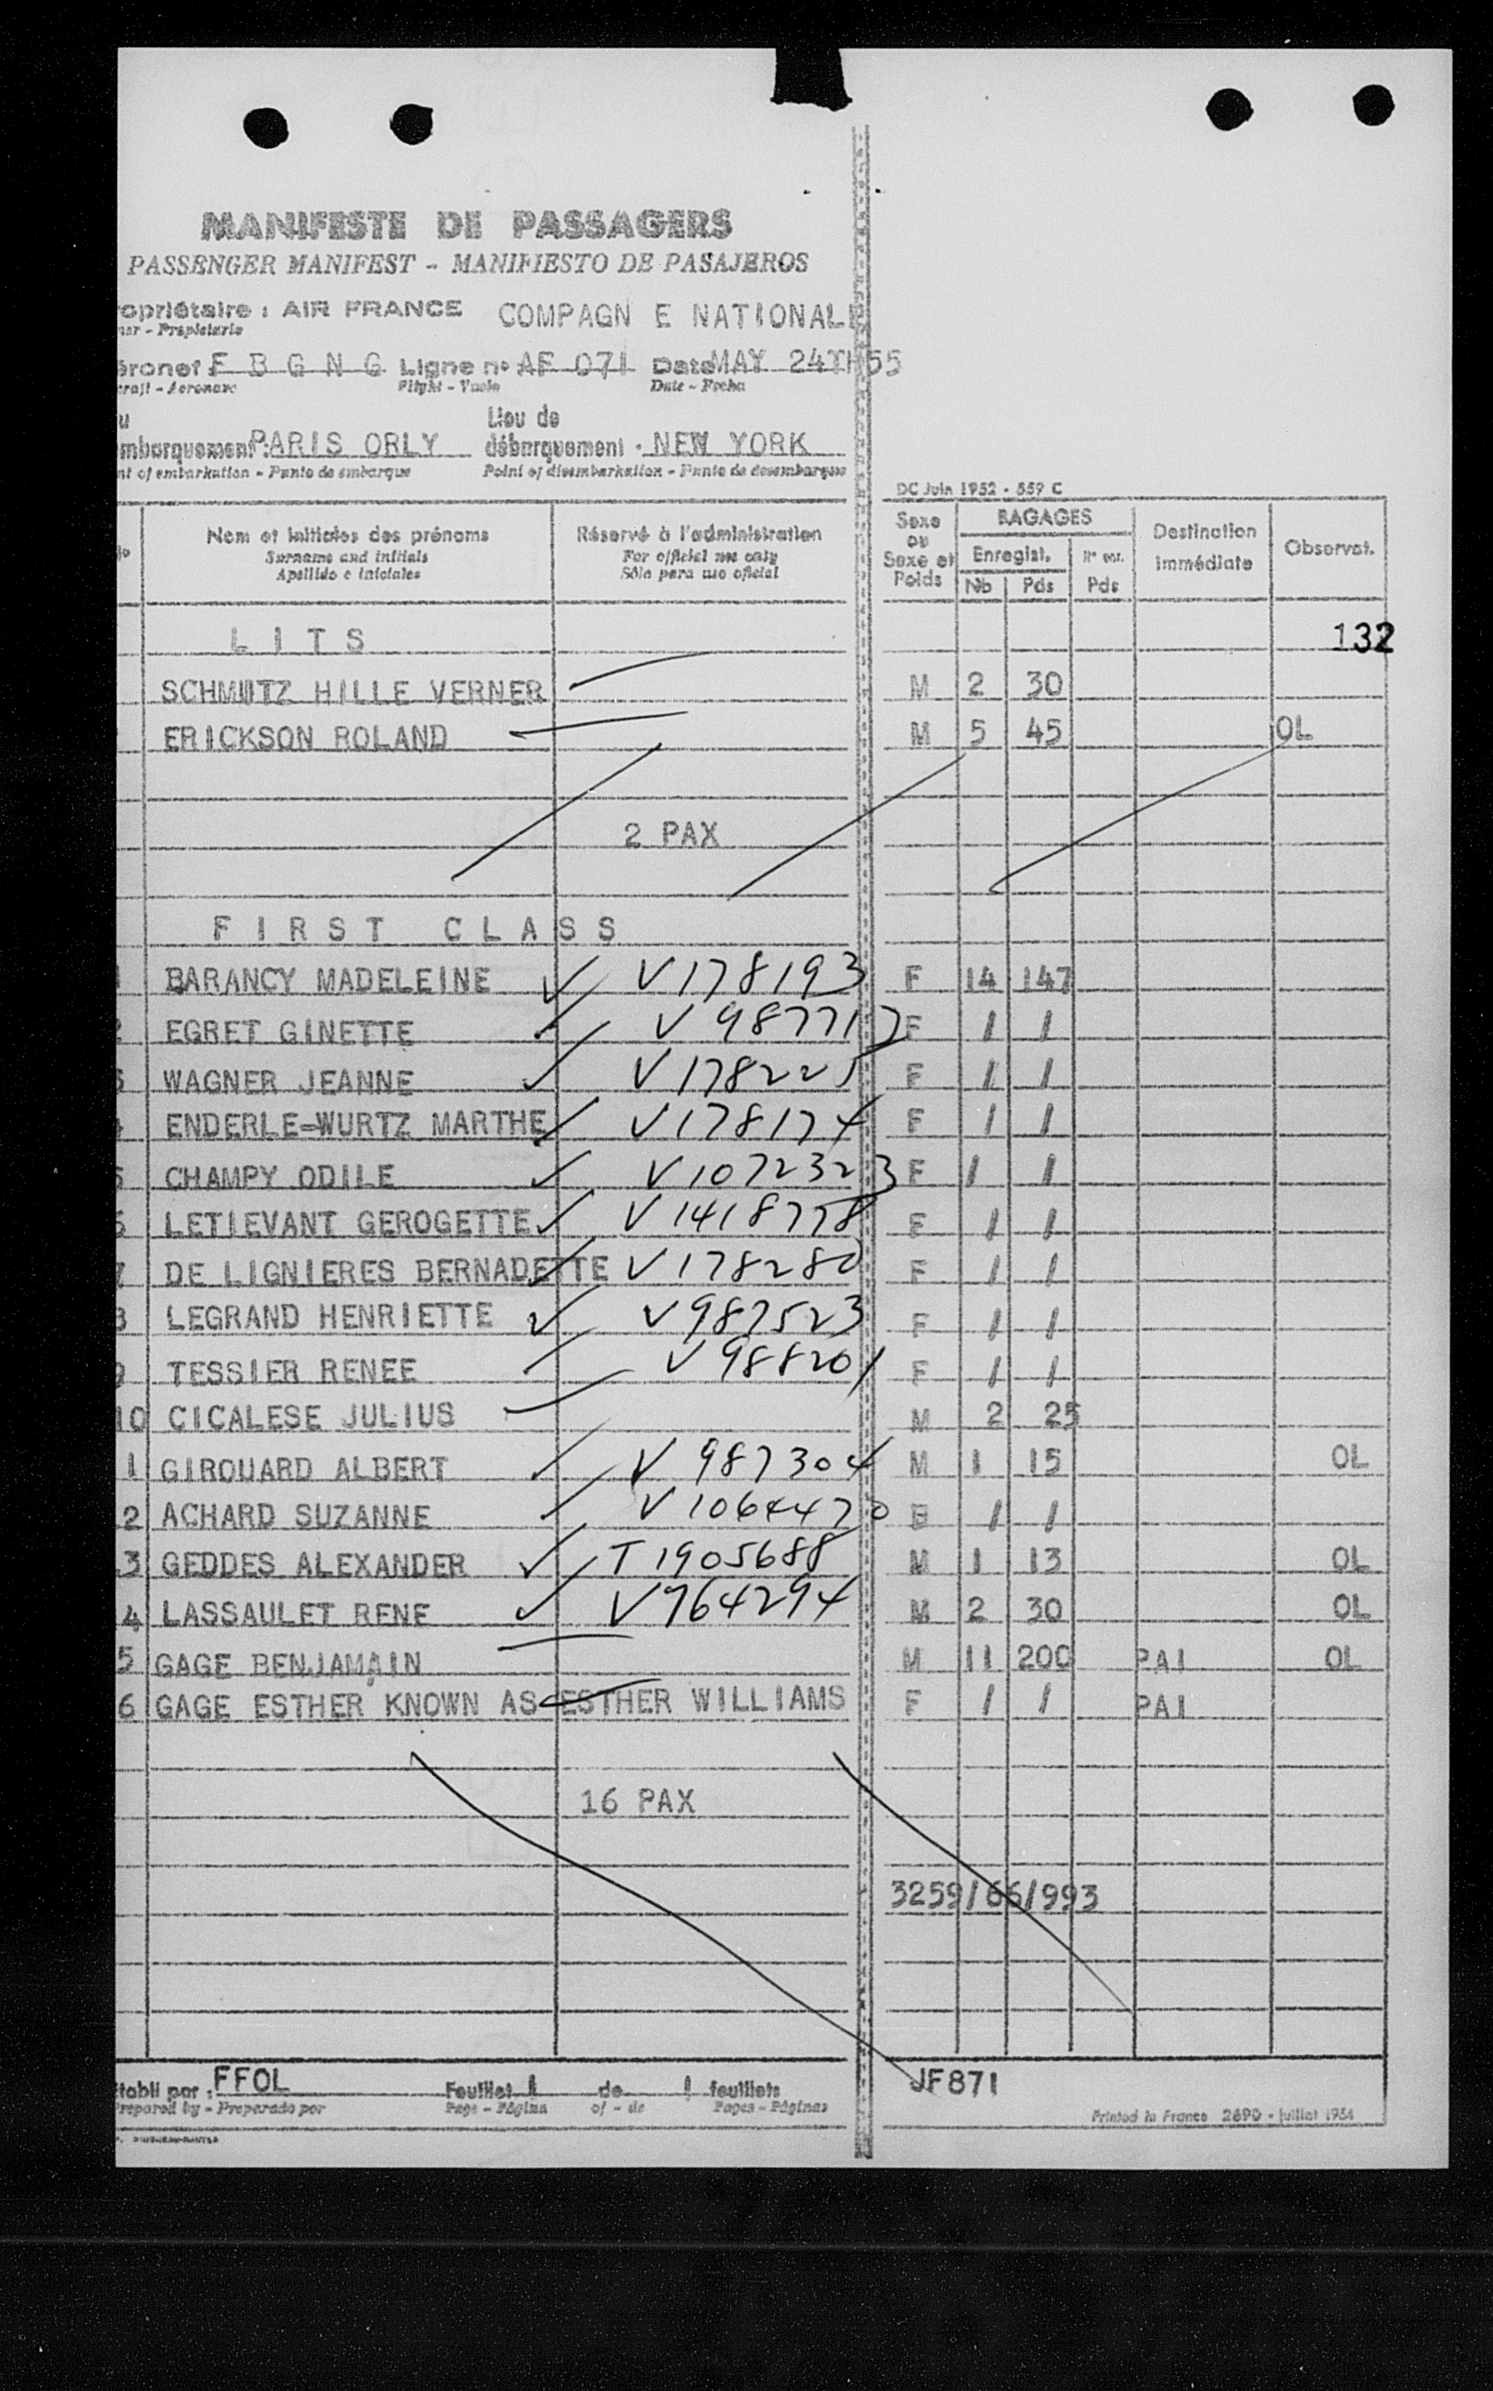 MANIFESTE DE PASSAGERS
PASSENGER MANIFEST - MANIFIESTO DE PASAJEROS
opriétaire : AIR FRANCE COMPAGN E NATIONALE
ner - Propietario
éronef : F B G N G Ligne nº AF 071 Date MAY 24TH 55
craft - Aeronave Flight - Vuelo Date - Fecha
u Lieu de
mbarquement : PARIS ORLY débarquement · NEW YORK
nt of embarkation - Punto de embarque Point of disembarkation - Punto de desembarque
DC Juin 1952 - 559 C
Nom et initiales des prénoms Réservé à l'administration Sexe ou Sexe et Poids BAGAGES Destination immédiate Observat.
Surname and initials For official use only Enregist.
Apellido e iniciales Sólo para uso oficial Nb Pds Pds
L I T S 132
SCHMUTZ HILLE VERNER M 2 30
ERICKSON ROLAND M 5 45 OL
2 PAX
F I R S T C L A S S
1 BARANCY MADELEINE V178193 F 14 147
2 EGRET GINETTE V 987717 F / /
3 WAGNER JEANNE V178225 F / /
4 ENDERLE-WURTZ MARTHE V178174 F / /
5 CHAMPY ODILE V1072323 F / /
6 LETIEVANT GEROGETTE V1418778 F / /
7 DE LIGNIERES BERNADETTE V178280 F / /
8 LEGRAND HENRIETTE V987523 F / /
9 TESSIER RENEE V988201 F / /
10 CICALESE JULIUS M 2 25
1 GIROUARD ALBERT V 987304 M 1 15 OL
2 ACHARD SUZANNE V1064470 F / /
3 GEDDES ALEXANDER T1905688 M 1 13 OL
4 LASSAULET RENE V764294 M 2 30 OL
5 GAGE BENJAMAIN M 11 200 PAI OL
6 GAGE ESTHER KNOWN AS ESTHER WILLIAMS F / / PAI
16 PAX
3259/66/993
Etabli par : FFOL Feuillet 1 de 1 feuillets JF871
Prepared by - Preparado por Page - Página of - de Pages - Páginas Printed in France 2690 - juillet 1954